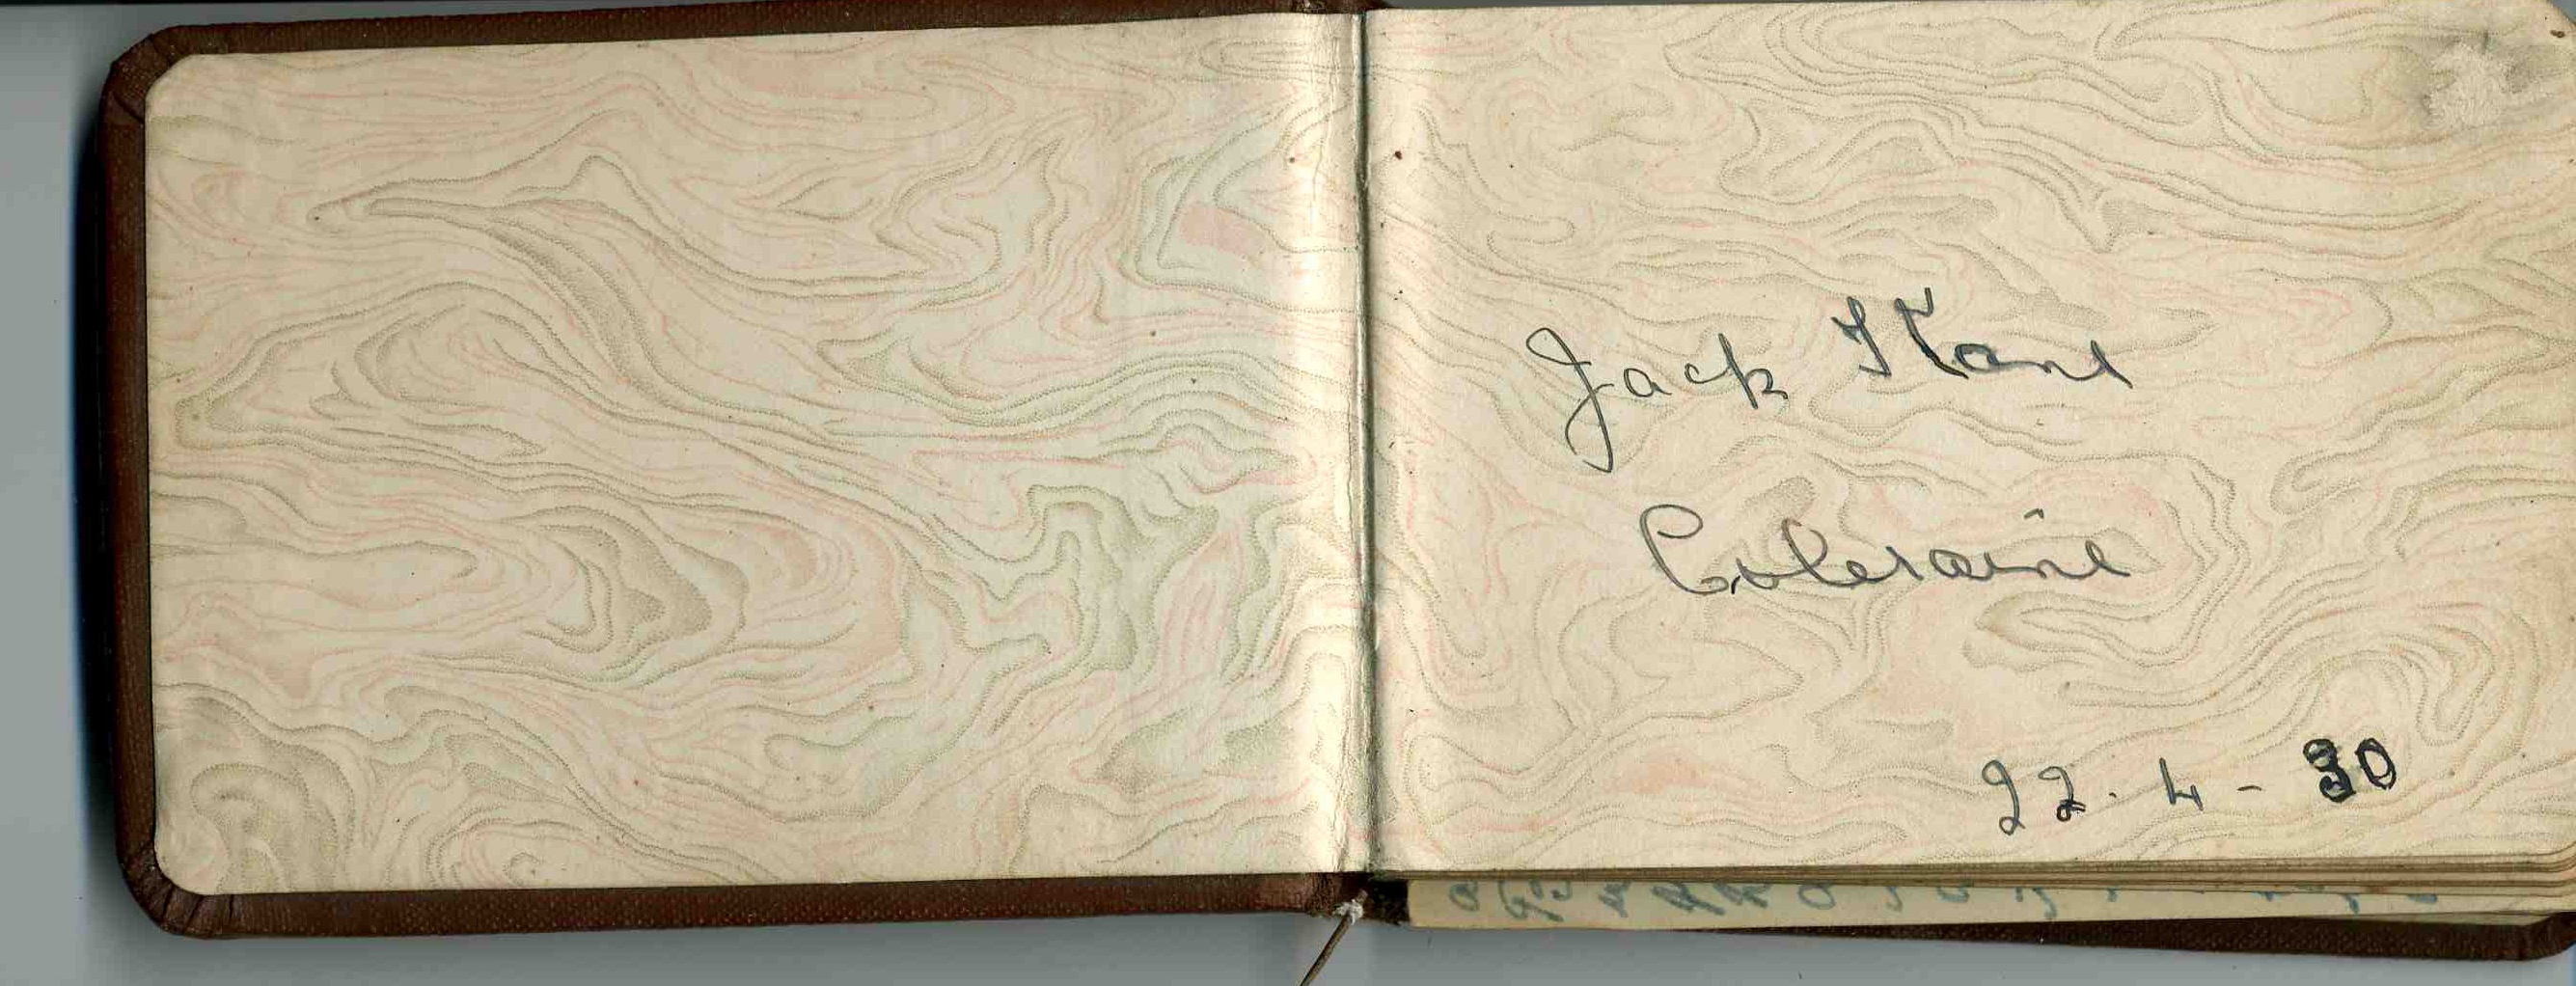 Jack Kane
Coleraine
22.4-30